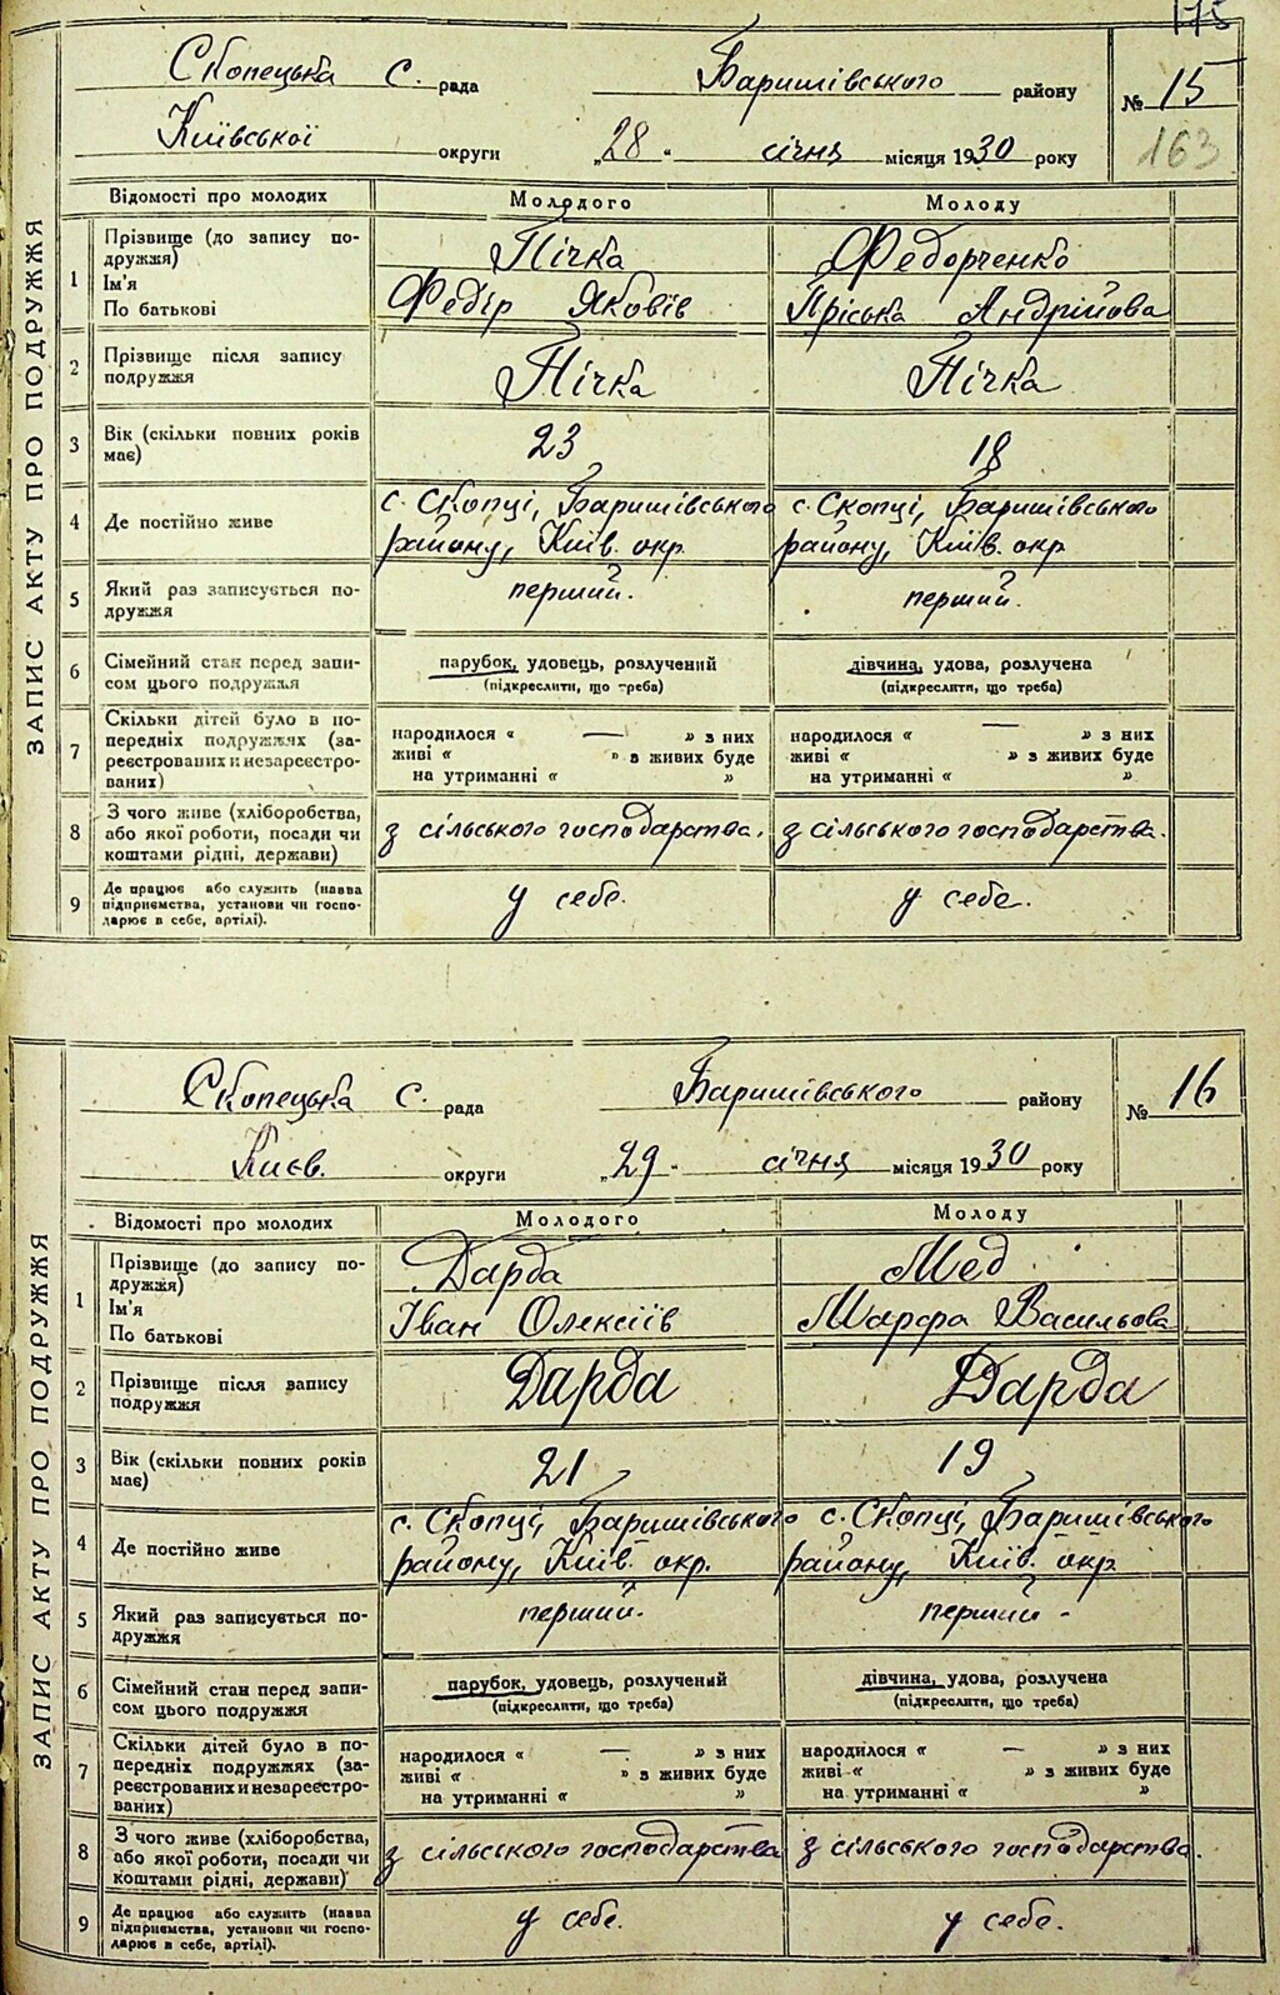 175
Скопецька с. рада Баришівського району № 15
Київської округи „28" січня місяця 1930 року 163
ЗАПИС АКТУ ПРО ПОДРУЖЖЯ
Відомості про молодих Молодого Молоду
1 Прізвище (до запису подружжя) Пічка Федорченко
Ім'я
По батькові Федір Яковів Пріська Андрійова
2 Прізвище після запису подружжя Пічка Пічка
3 Вік (скільки повних років має) 23 18
4 Де постійно живе с. Скопці, Баришівського с. Скопці, Баришівського
району, Київ. окр. району, Київ. окр
5 Який раз записується подружжя перший. перший.
6 Сімейний стан перед записом цього подружжя парубок, удовець, розлучений дівчина, удова, розлучена
(підкреслити, що треба) (підкреслити, що треба)
7 Скільки дітей було в попередніх подружжях (зареєстрованих и незареєстрованих) народилося « — » з них народилося « — » з них
живі « » з живих буде живі « » з живих буде
на утриманні « » на утриманні « »
8 З чого живе (хліборобства, або якої роботи, посади чи коштами рідні, держави) з сільського господарства. з сільського господарства.
9 Де працює або служить (назва підприємства, установи чи господарює в себе, артілі). у себе. у себе.
Скопецька с. рада Баришівського району № 16
Києв. округи „29" січня місяця 1930 року
ЗАПИС АКТУ ПРО ПОДРУЖЖЯ
Відомості про молодих Молодого Молоду
1 Прізвище (до запису подружжя) Дарда Мед
Ім'я
По батькові Іван Олексіїв Марфа Васильова
2 Прізвище після запису подружжя Дарда Дарда
3 Вік (скільки повних років має) 21 19
4 Де постійно живе с. Скопці, Баришівського с. Скопці, Баришівського
району, Київ. окр. району, Київ. окр
5 Який раз записується подружжя перший. перший -
6 Сімейний стан перед записом цього подружжя парубок, удовець, розлучений дівчина, удова, розлучена
(підкреслити, що треба) (підкреслити, що треба)
7 Скільки дітей було в попередніх подружжях (зареєстрованих и незареєстрованих) народилося « — » з них народилося « — » з них
живі « » з живих буде живі « » з живих буде
на утриманні « » на утриманні « »
8 З чого живе (хліборобства, або якої роботи, посади чи коштами рідні, держави) з сільського господарства з сільського господарства.
9 Де працює або служить (назва підприємства, установи чи господарює в себе, артілі). у себе. у себе.